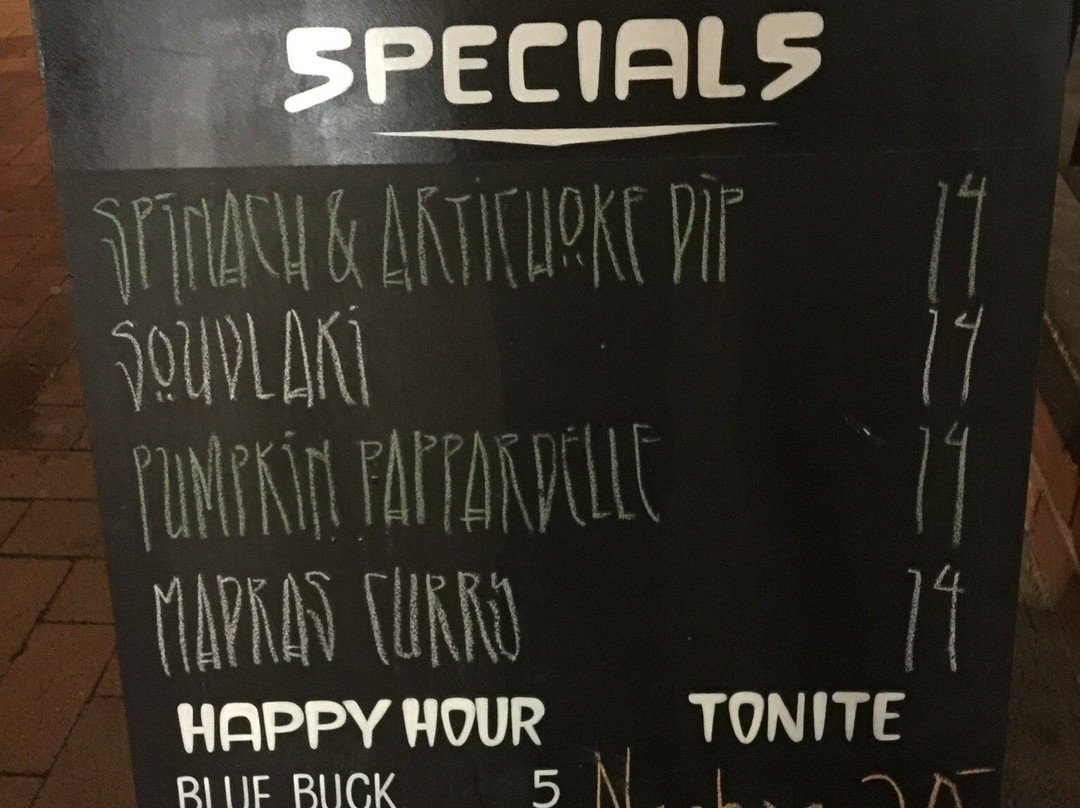 SPECIALS
SPINACH & ARTICHOKE DIP 14
SOUVLAKI 14
PUMPKIN PAPPARDELLE 14
MADRAS CURRY 14
HAPPY HOUR TONITE
BLUE BUCK 5